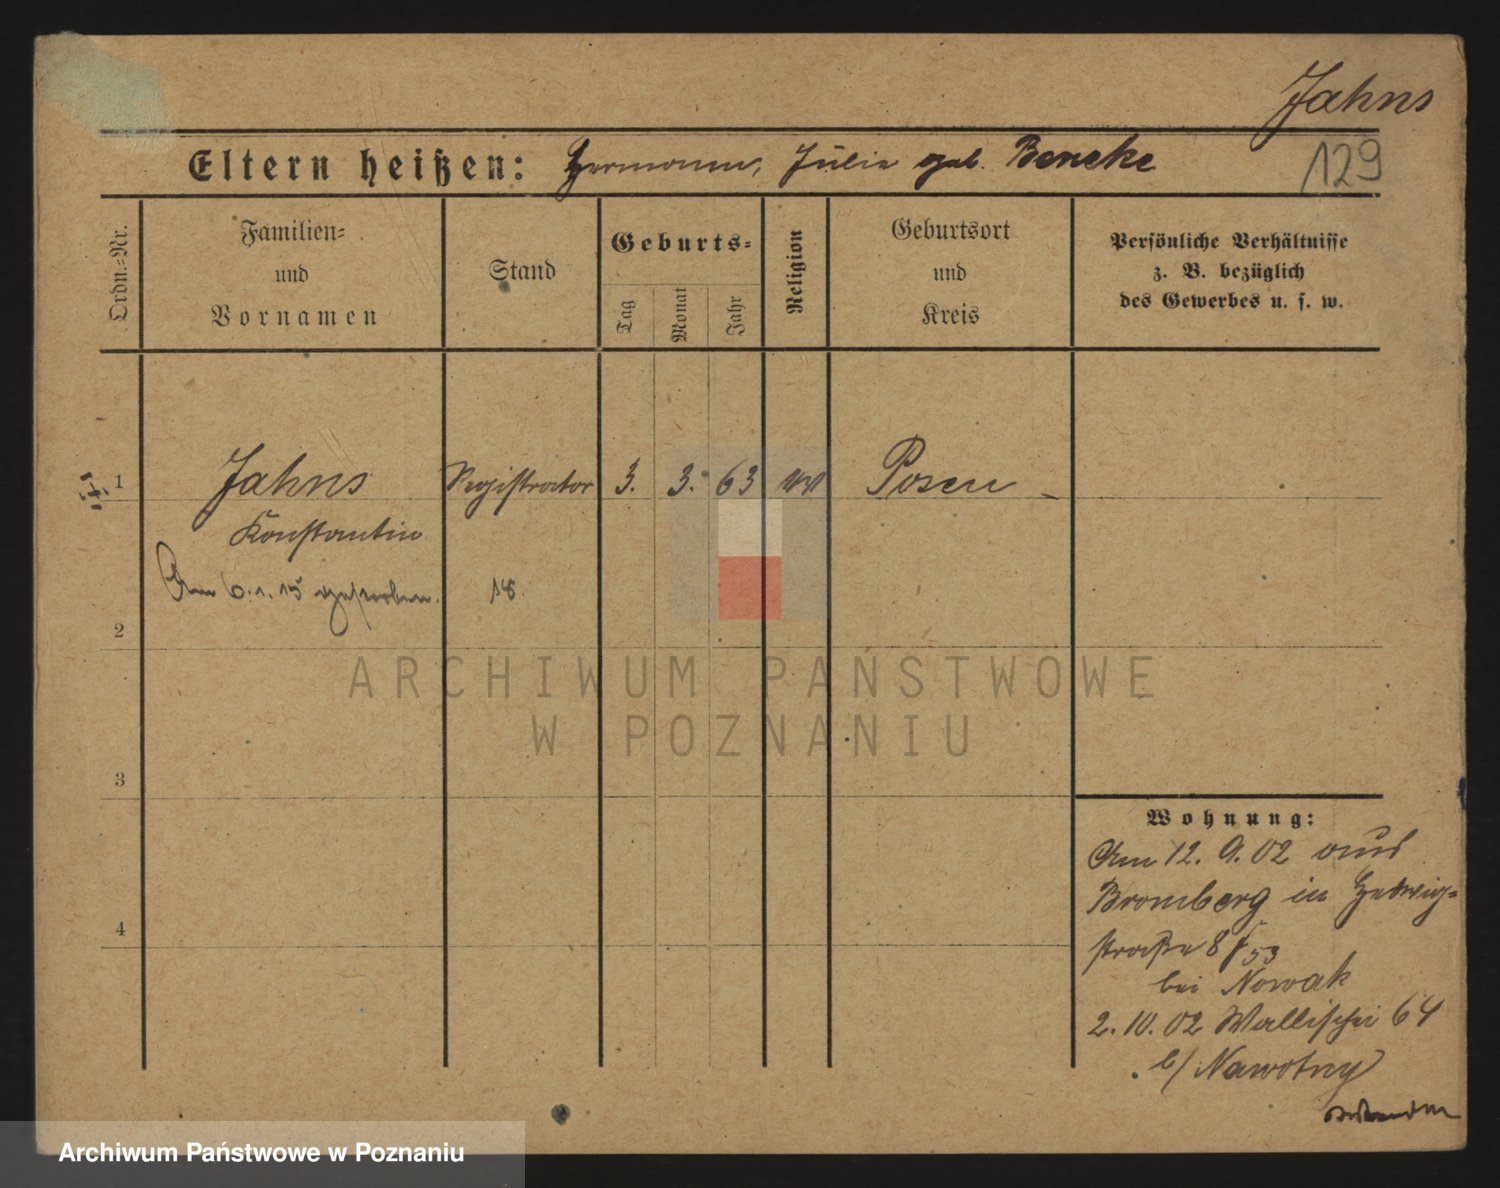 Jahns
Eltern heißen: Hermann, Julie geb. Beneke
129
Ordn.-Nr.
Familien-
und
Vornamen
Stand
Geburts-
Tag
Monat
Jahr
Religion
Geburtsort
und
Kreis
Persönliche Verhältnisse
z. B. bezüglich
des Gewerbes u. s. w.
1 Jahns Registrator 3. 3. 63 ev Posen
Konstantin
Am 6.1.15 gestorben. 18.
2
ARCHIWUM PAŃSTWOWE
W POZNANIU
3
Wohnung:
Am 12. 9. 02 aus
Bromberg in Hedwig-
straße 8
53
4
bei Nowak
2. 10. 02 Wallischei 64
b/ Nawotny
Archiwum Państwowe w Poznaniu